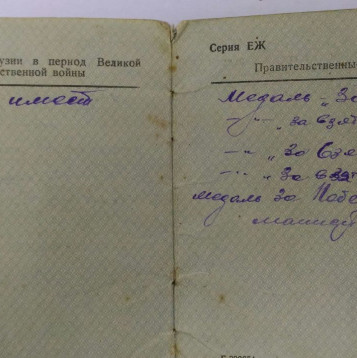 узии в период Великой
ственной войны
имеет
Серия ЕЖ
Правительственны
Медаль „За
—"— „за взят
—"— „За Взя
—"— „За взят
медаль За Побе